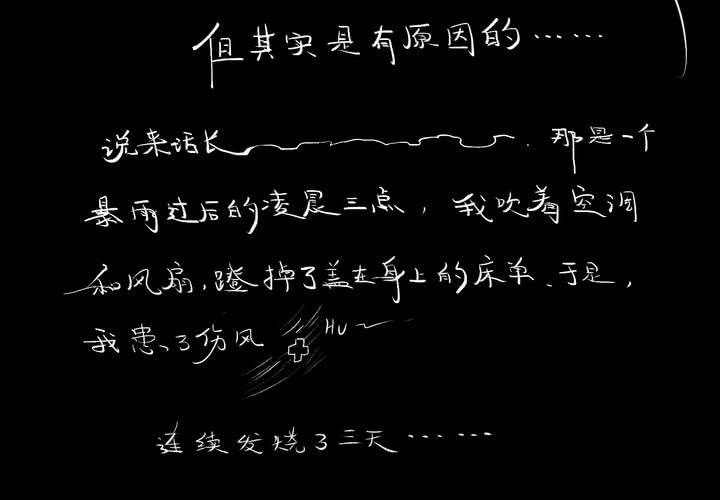 但其实是有原因的……
说来话长～～. 那是一个
暴雨过后的凌晨三点，我吹着空调
和风扇,蹬掉了盖在身上的床单、于是,
我患了伤风 Hu～
连续发烧了三天……